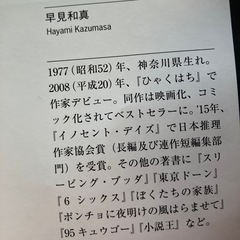 早見和真
Hayami Kazumasa
1977(昭和52)年、神奈川県生れ。
2008(平成20)年、『ひゃくはち』で
作家デビュー。同作は映画化、コミ
ック化されてベストセラーに。'15年、
『イノセント・デイズ』で日本推理
作家協会賞(長編及び連作短編集部
門)を受賞。その他の著書に『スリ
ーピング・ブッダ』『東京ドーン』
『6 シックス』『ぼくたちの家族』
『ポンチョに夜明けの風はらませて』
『95 キュウゴー』『小説王』など。